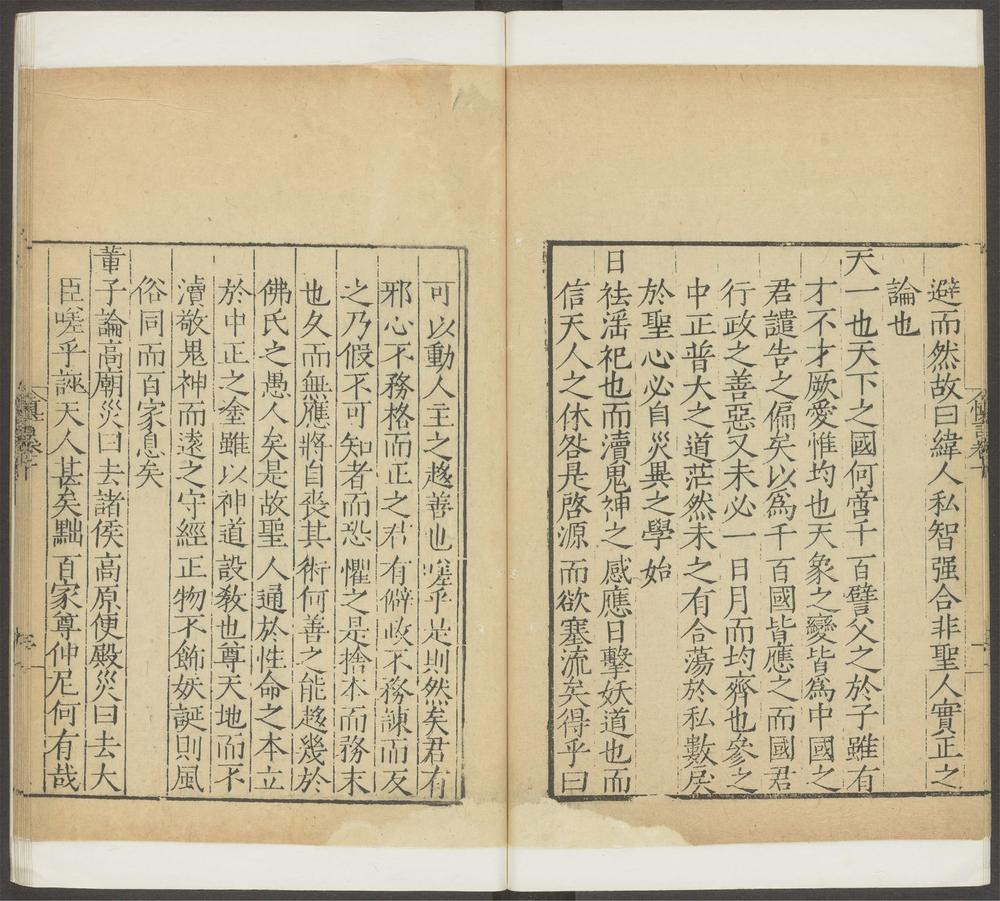 避而然故曰緯人私智强合非聖人實正之
論也
天一也天下之國何啻千百譬父之於子雖有
才不才厥愛惟均也天象之變皆爲中國之
君譴告之偏矣以爲千百國皆應之而國君
行政之善惡又未必一日月而均齊也參之
中正普大之道茫然未之有合蕩於私數戾
於聖心必自災異之學始
日祛滛祀也而瀆鬼神之感應日擊妖道也而
信天人之休咎是啓源而欲塞流矣得乎曰
可以動人主之趍善也嗟乎是則然矣君有
邪心不務格而正之君有僻政不務諫而反
之乃假不可知者而恐懼之是捨本而務末
也久而無應將自喪其術何善之能趍幾於
佛氏之愚人矣是故聖人通於性命之本立
於中正之塗雖以神道設敎也尊天地而不
瀆敬鬼神而遠之守經正物不飾妖誕則風
俗同而百家息矣
董子論高廟災曰去諸侯高原便殿災曰去大
臣嗟乎誣天人甚矣黜百家尊仲尼何有哉